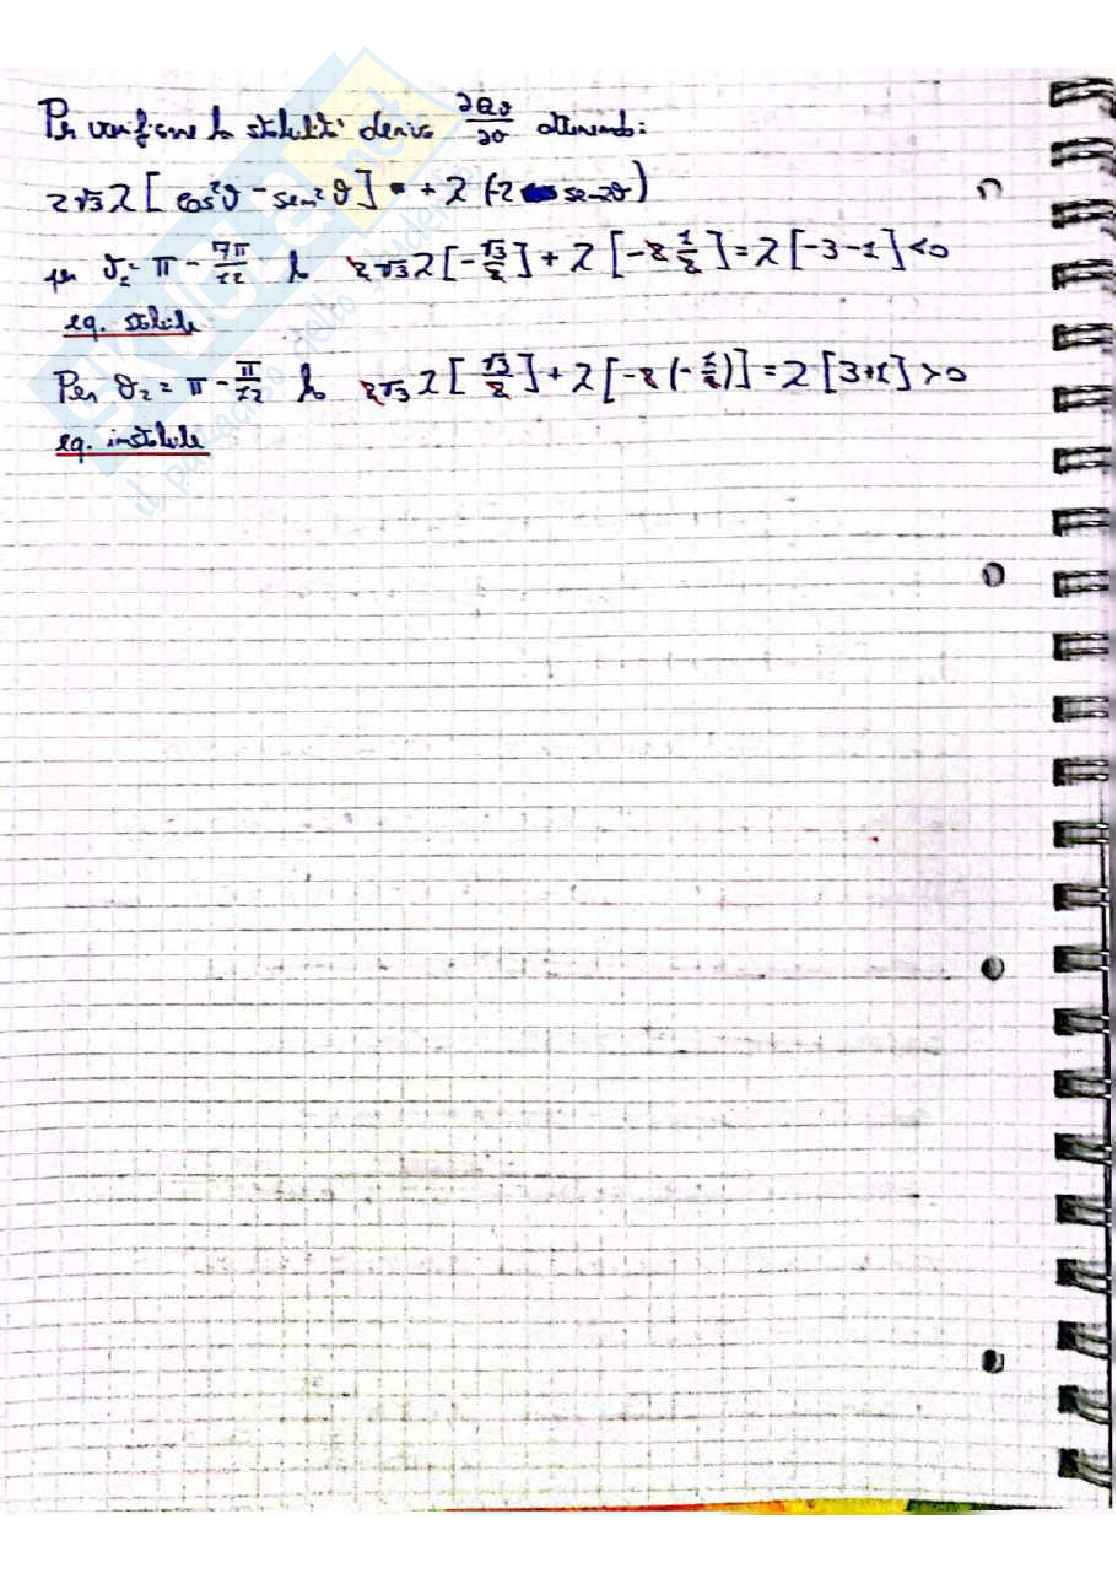 Per verificare la stabilità derivo ∂Qϑ/∂ϑ ottenendo:
2√3 λ [cos²ϑ - sen²ϑ] + λ (-2 sen2ϑ)
per ϑ₁ = π - 7π/12 ho 2√3 λ [-√3/2] + λ [-2 1/2] = λ [-3-1] < 0
eq. stabile
Per ϑ₂ = π - π/12 ho 2√3 λ [√3/2] + λ [-2 (-1/2)] = λ [3+1] > 0
eq. instabile